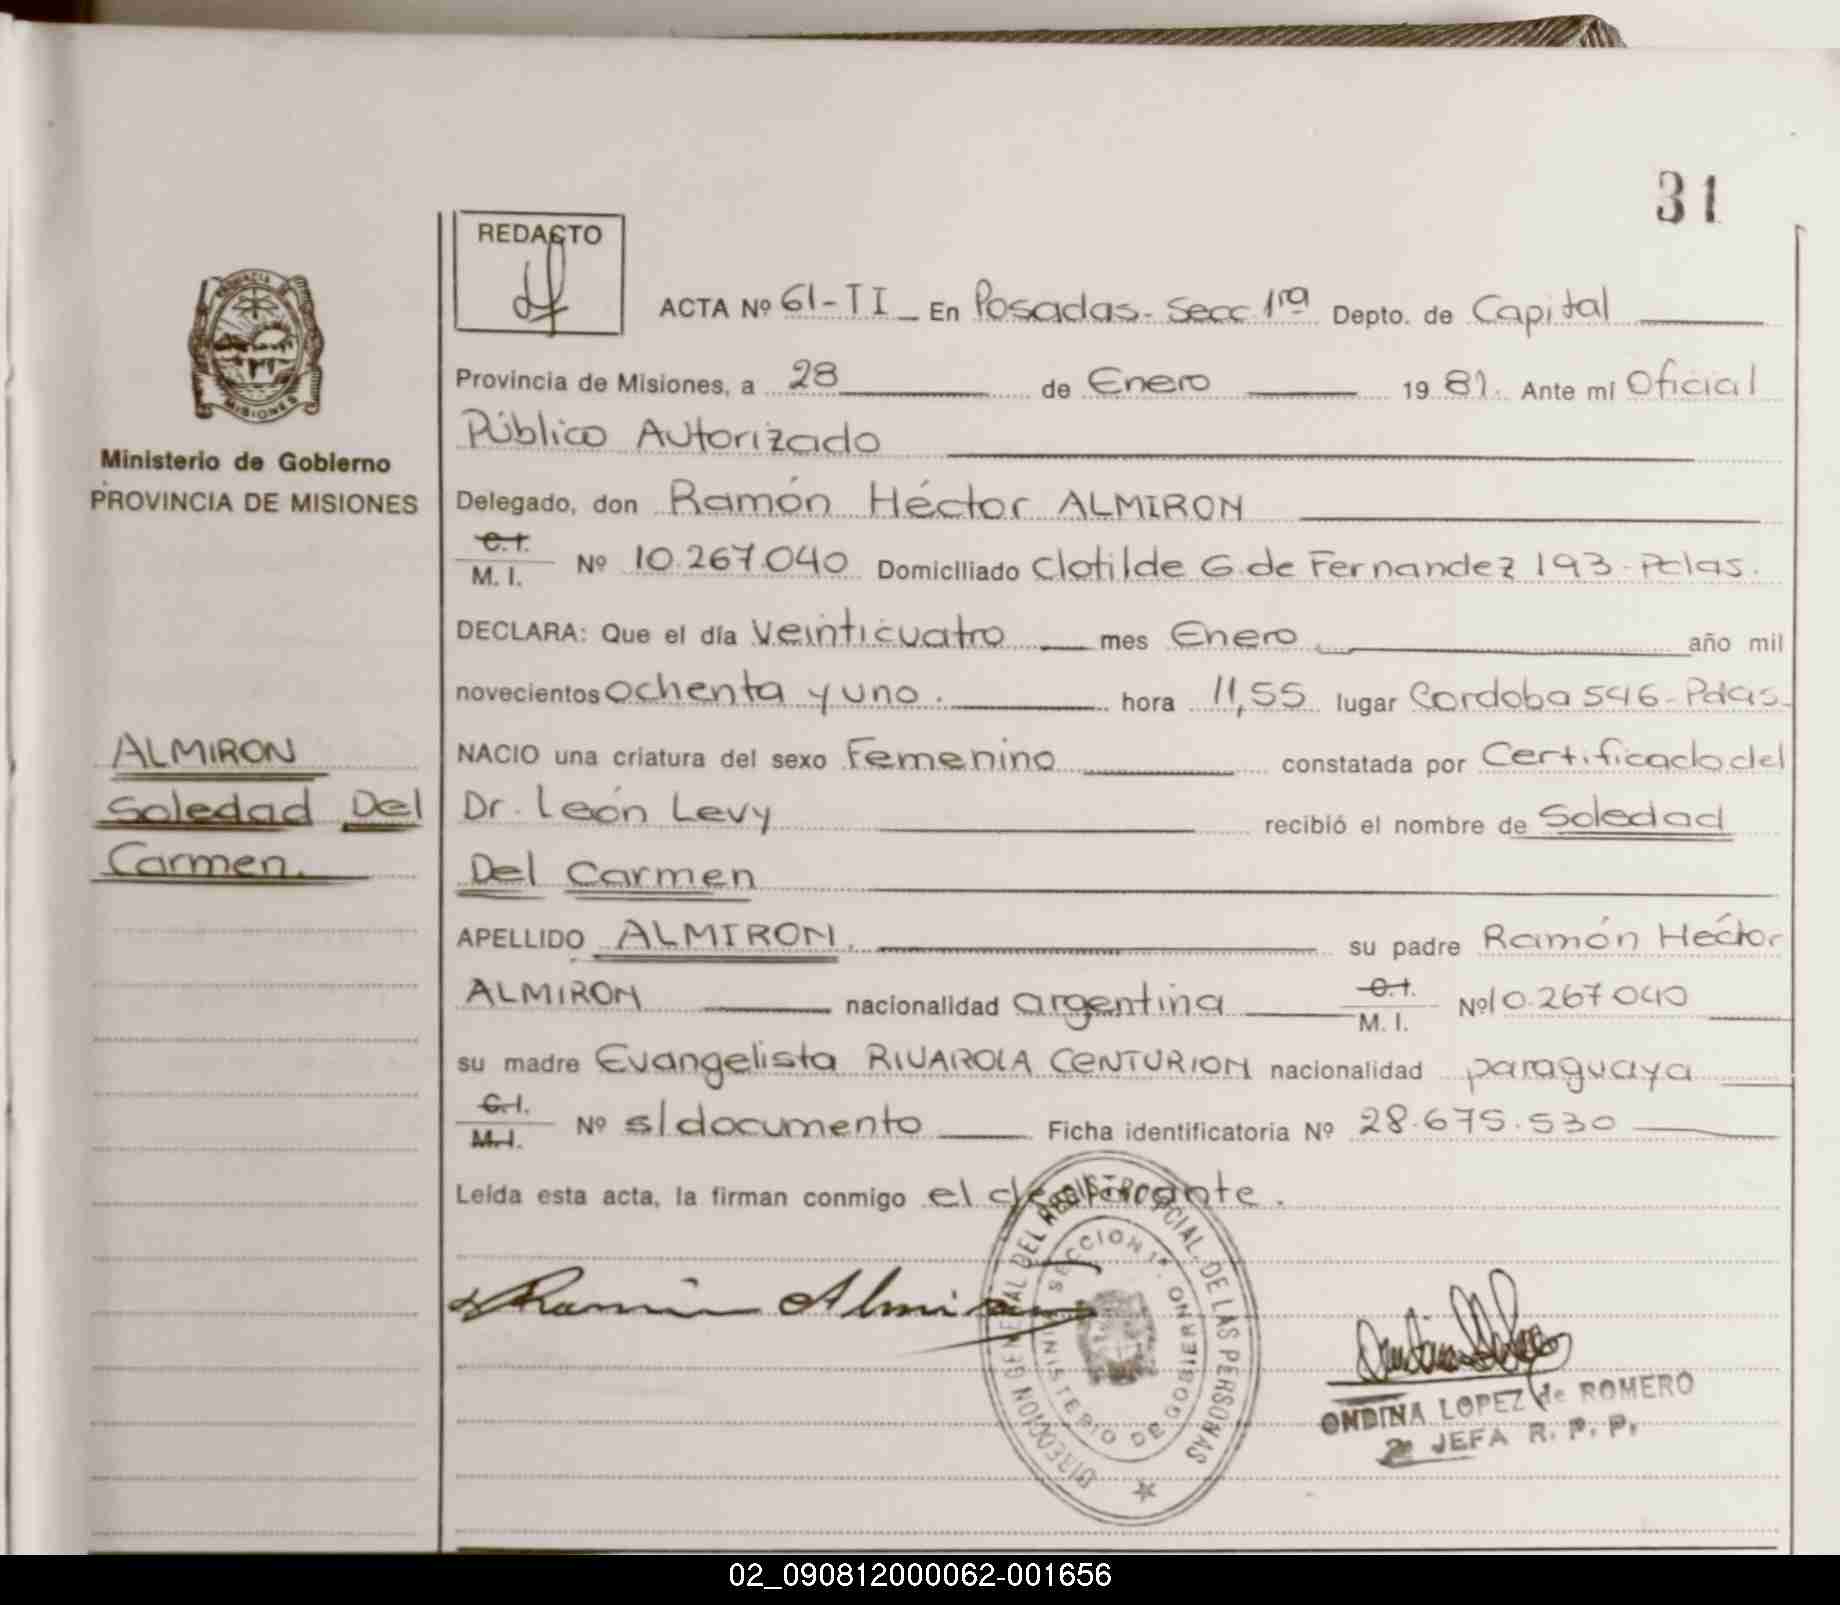 31
REDACTO
ACTA Nº 61-TI_ En Posadas-Secc 1ra Depto. de Capital
Provincia de Misiones, a 28 de Enero 1981. Ante mí Oficial
Público Autorizado
PROVINCIA DE
MISIONES
Ministerio de Gobierno
PROVINCIA DE MISIONES
Delegado, don Ramón Héctor ALMIRON
C.I.
M. I. Nº 10.267.040 Domiciliado Clotilde G. de Fernandez 193-Pdas.
DECLARA: Que el día Veinticuatro mes Enero año mil
novecientos ochenta y uno. hora 11,55 lugar Cordoba 546-Pdas-
ALMIRON
Soledad Del
Carmen.
NACIO una criatura del sexo Femenino constatada por Certificado del
Dr. León Levy recibió el nombre de Soledad
Del Carmen
APELLIDO ALMIRON. su padre Ramón Héctor
ALMIRON nacionalidad argentina C.I.
M. I. Nº 10.267.040
su madre Evangelista RIVAROLA CENTURION nacionalidad paraguaya
C.I.
M.I. Nº s/documento Ficha identificatoria Nº 28.675.530
Leída esta acta, la firman conmigo el declarante.
Ramón Almiron
DIRECCION GENERAL DEL REGISTRO PCIAL. DE LAS PERSONAS
SECCION 1ª.
MINISTERIO DE GOBIERNO
ONDINA LOPEZ de ROMERO
JEFA R. P. P.
02_090812000062-001656